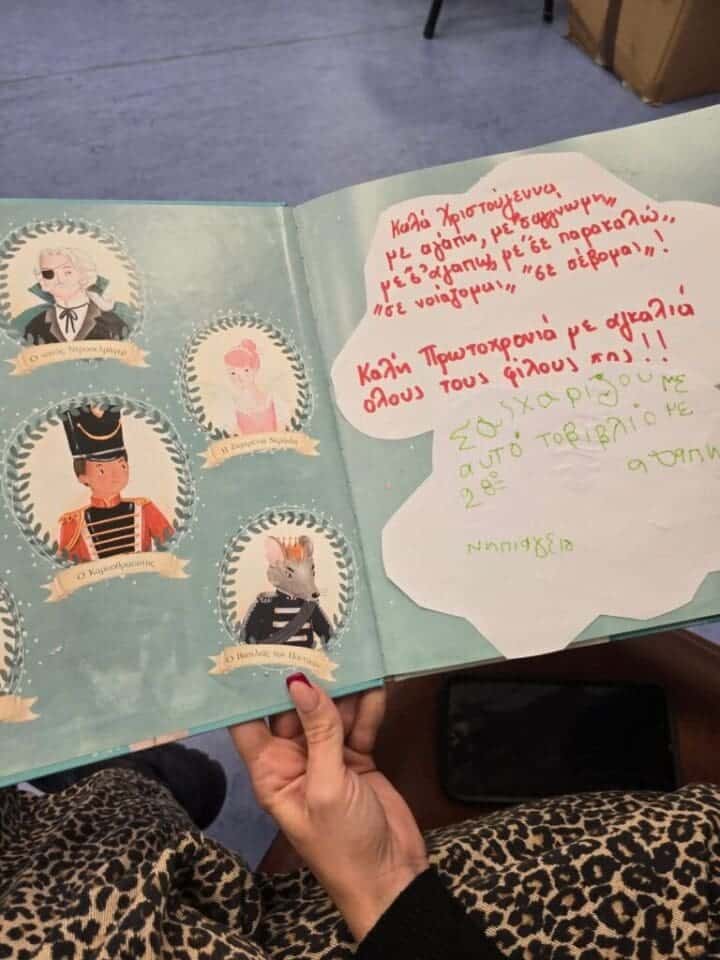 Ο κύριος Ντροσελμάγιερ
Η Ζαχαρένια Νεράιδα
Ο Καρυοθραύστης
Ο Βασιλιάς των Ποντικών
Καλά Χριστούγεννα
με αγάπη, με "συγγνώμη"
με "σ' αγαπώ", με "σε παρακαλώ",
"σε νοιάζομαι" "σε σέβομαι"!
Καλή Πρωτοχρονιά με αγκαλιά
όλους τους φίλους μας!!
Σας χαρίζουμε
αυτό τοβιβλίο με
αγαπη
28ο
νηπιαγείο